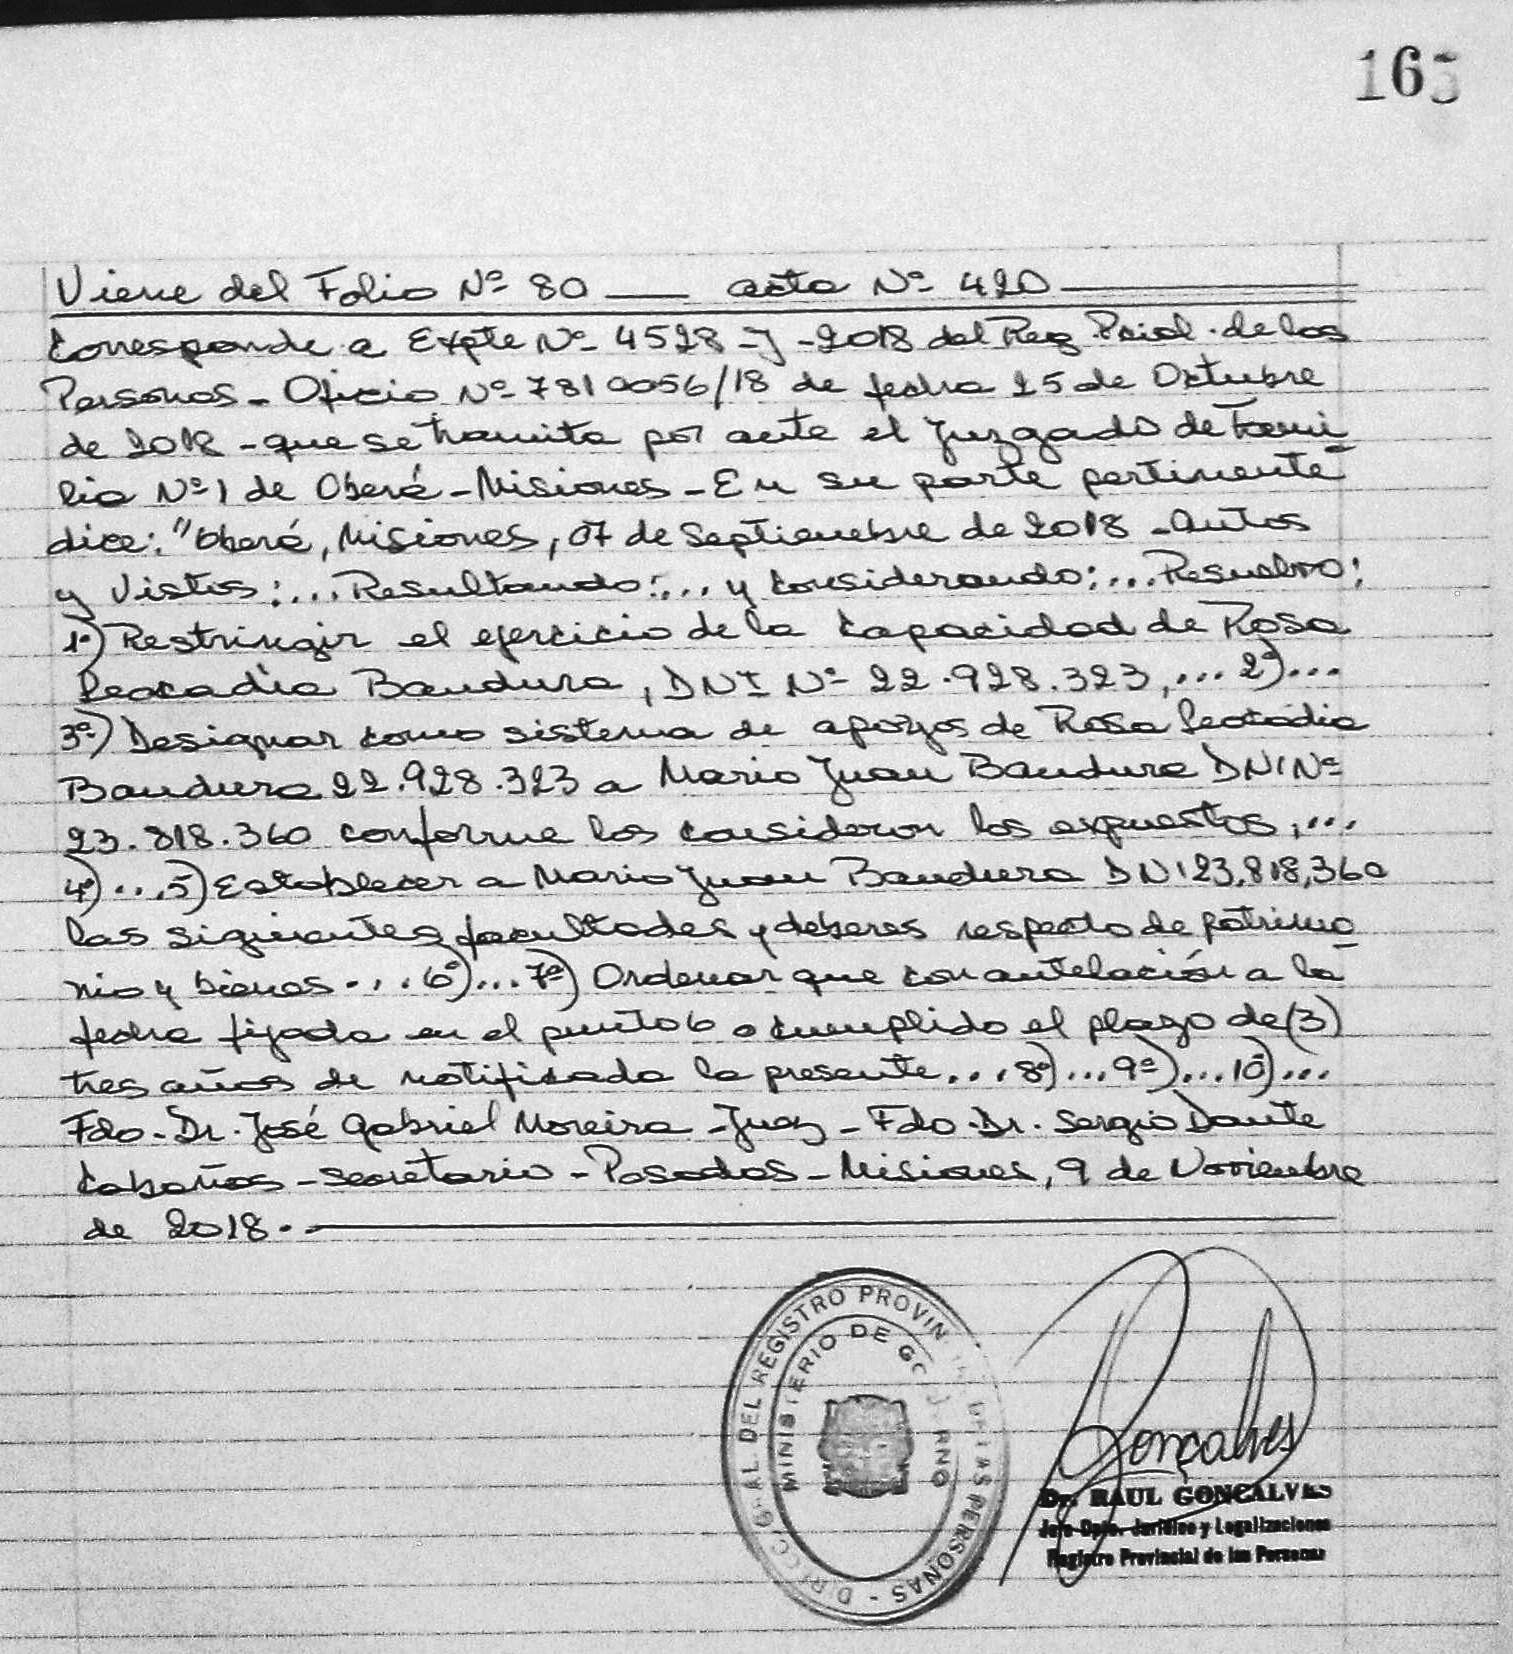 165
Viene del Folio Nº 80 — acta Nº 420
Corresponde a Expte Nº 4528-J-2018 del Reg Pcial. de las
Personas - Oficio Nº 7810056/18 de fecha 25 de Octubre
de 2018 - que se tramita por ante el Juzgado de Fami
lia Nº 1 de Oberá - Misiones - En su parte pertinente
dice: "Oberá, Misiones, 07 de Septiembre de 2018 - Autos
y Vistos: ... Resultando: ... y Considerando: ... Resuelvo:
1º) Restringir el ejercicio de la capacidad de Rosa
Leocadia Bandura, DNI Nº 22.928.323, ... 2º) ...
3º) Designar como sistema de apoyos de Rosa Leocadia
Bandura 22.928.323 a Mario Juan Bandura DNI Nº
23.818.360 conforme los consideran los expuestos, ...
4º) ... 5) Establecer a Mario Juan Bandura DNI 23,818,360
las siguientes facultades y deberes respecto de patrimo
nio y bienes ... 6º) ... 7º) Ordenar que con antelación a la
fecha fijada en el punto 6 o cumplido el plazo de (3)
tres años de notificada la presente ... 8º) ... 9º) ... 10) ...
Fdo - Dr. José Gabriel Moreira - Juez - Fdo. Dr. Sergio Dante
Cabañas - Secretario - Posadas - Misiones, 9 de Noviembre
de 2018.-
AL DEL REGISTRO PERSONAS
MINISTERIO DE
Gonçalves
Dr. RAUL GONCALVES
Jefe Dpto. Jurídico y Legalizaciones
Registro Provincial de las Personas